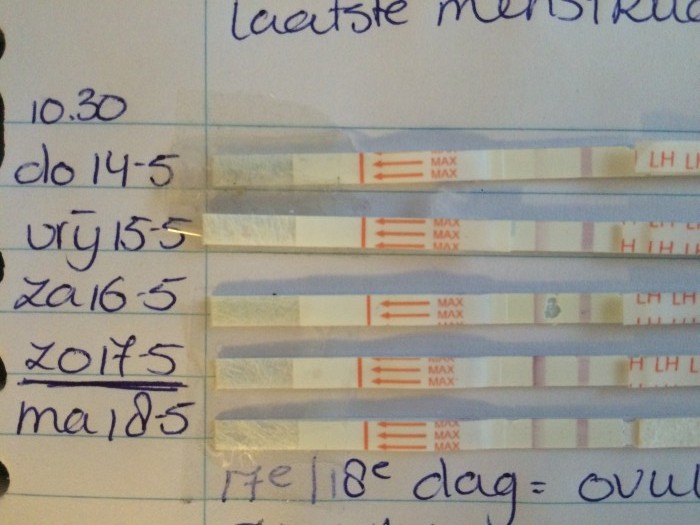 laatste
10.30
do 14-5
MAX
MAX
LH
vrij 15-5
MAX
MAX
MAX
H LH LH
za 16-5
MAX
MAX
LH LH
zo 17-5
MAX
MAX
MAX
H LH LH
ma 18-5
MAX
MAX
MAX
17e/18e dag =